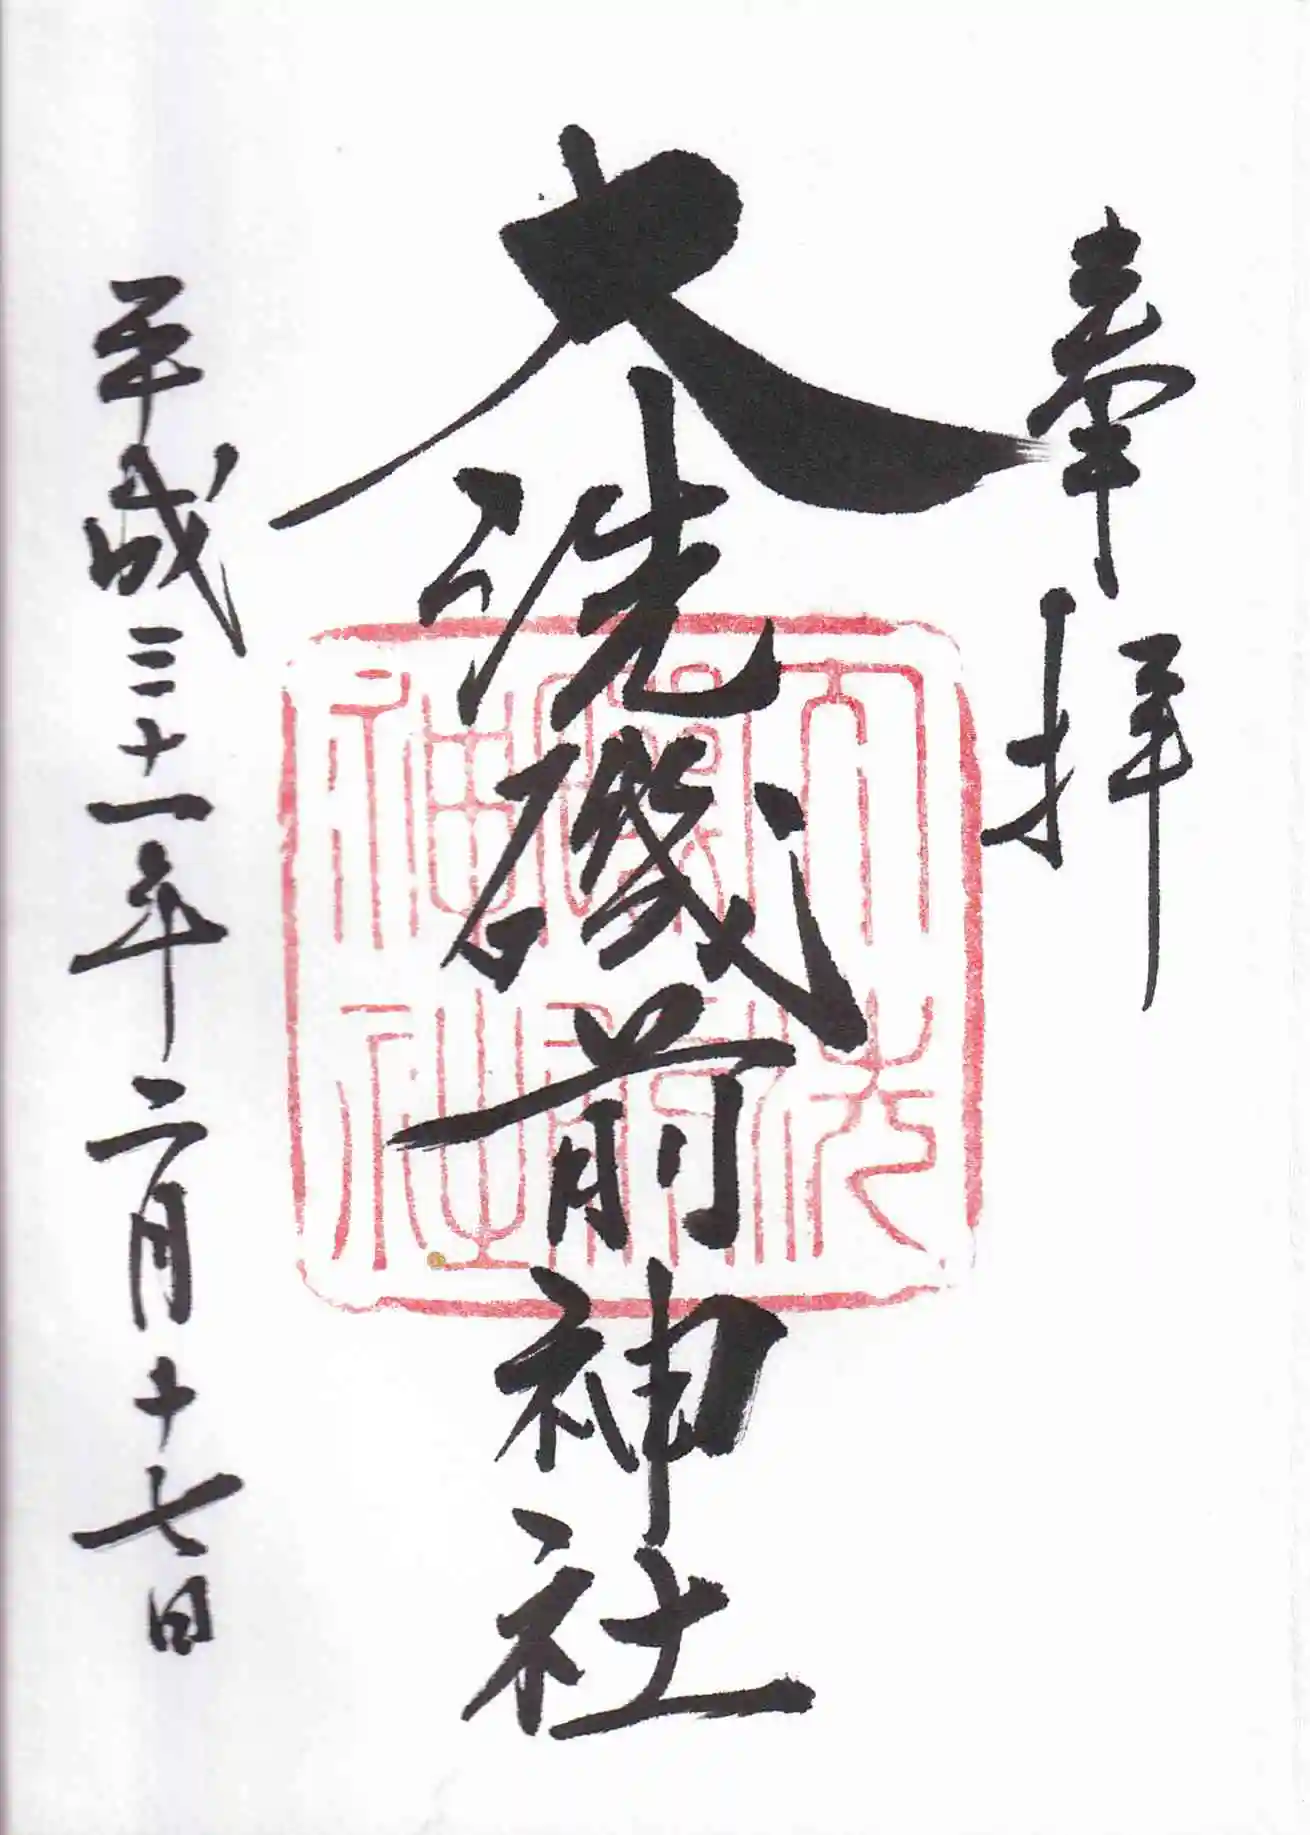 奉拝
大洗磯前神社
大洗
磯前
神社
平成三十一年二月十七日